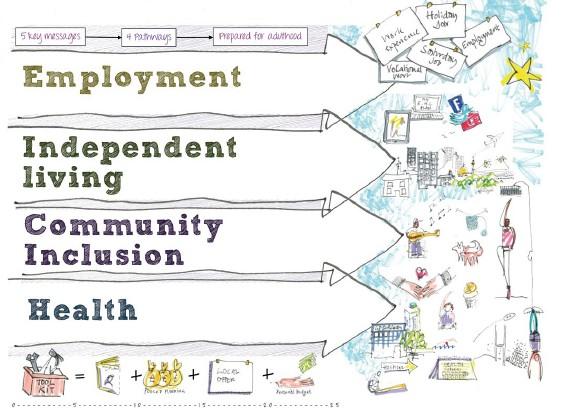 5 key messages
4 Pathways
Prepared for adulthood
Work Experience
Holiday Job
Saturday Job
Employment
Vocational
Employment
Independent
living
Community
Inclusion
Health
TOOL
KIT
=
+
+
LOCAL
OFFER
+
Personal Budget
0 5 10 15 20 25